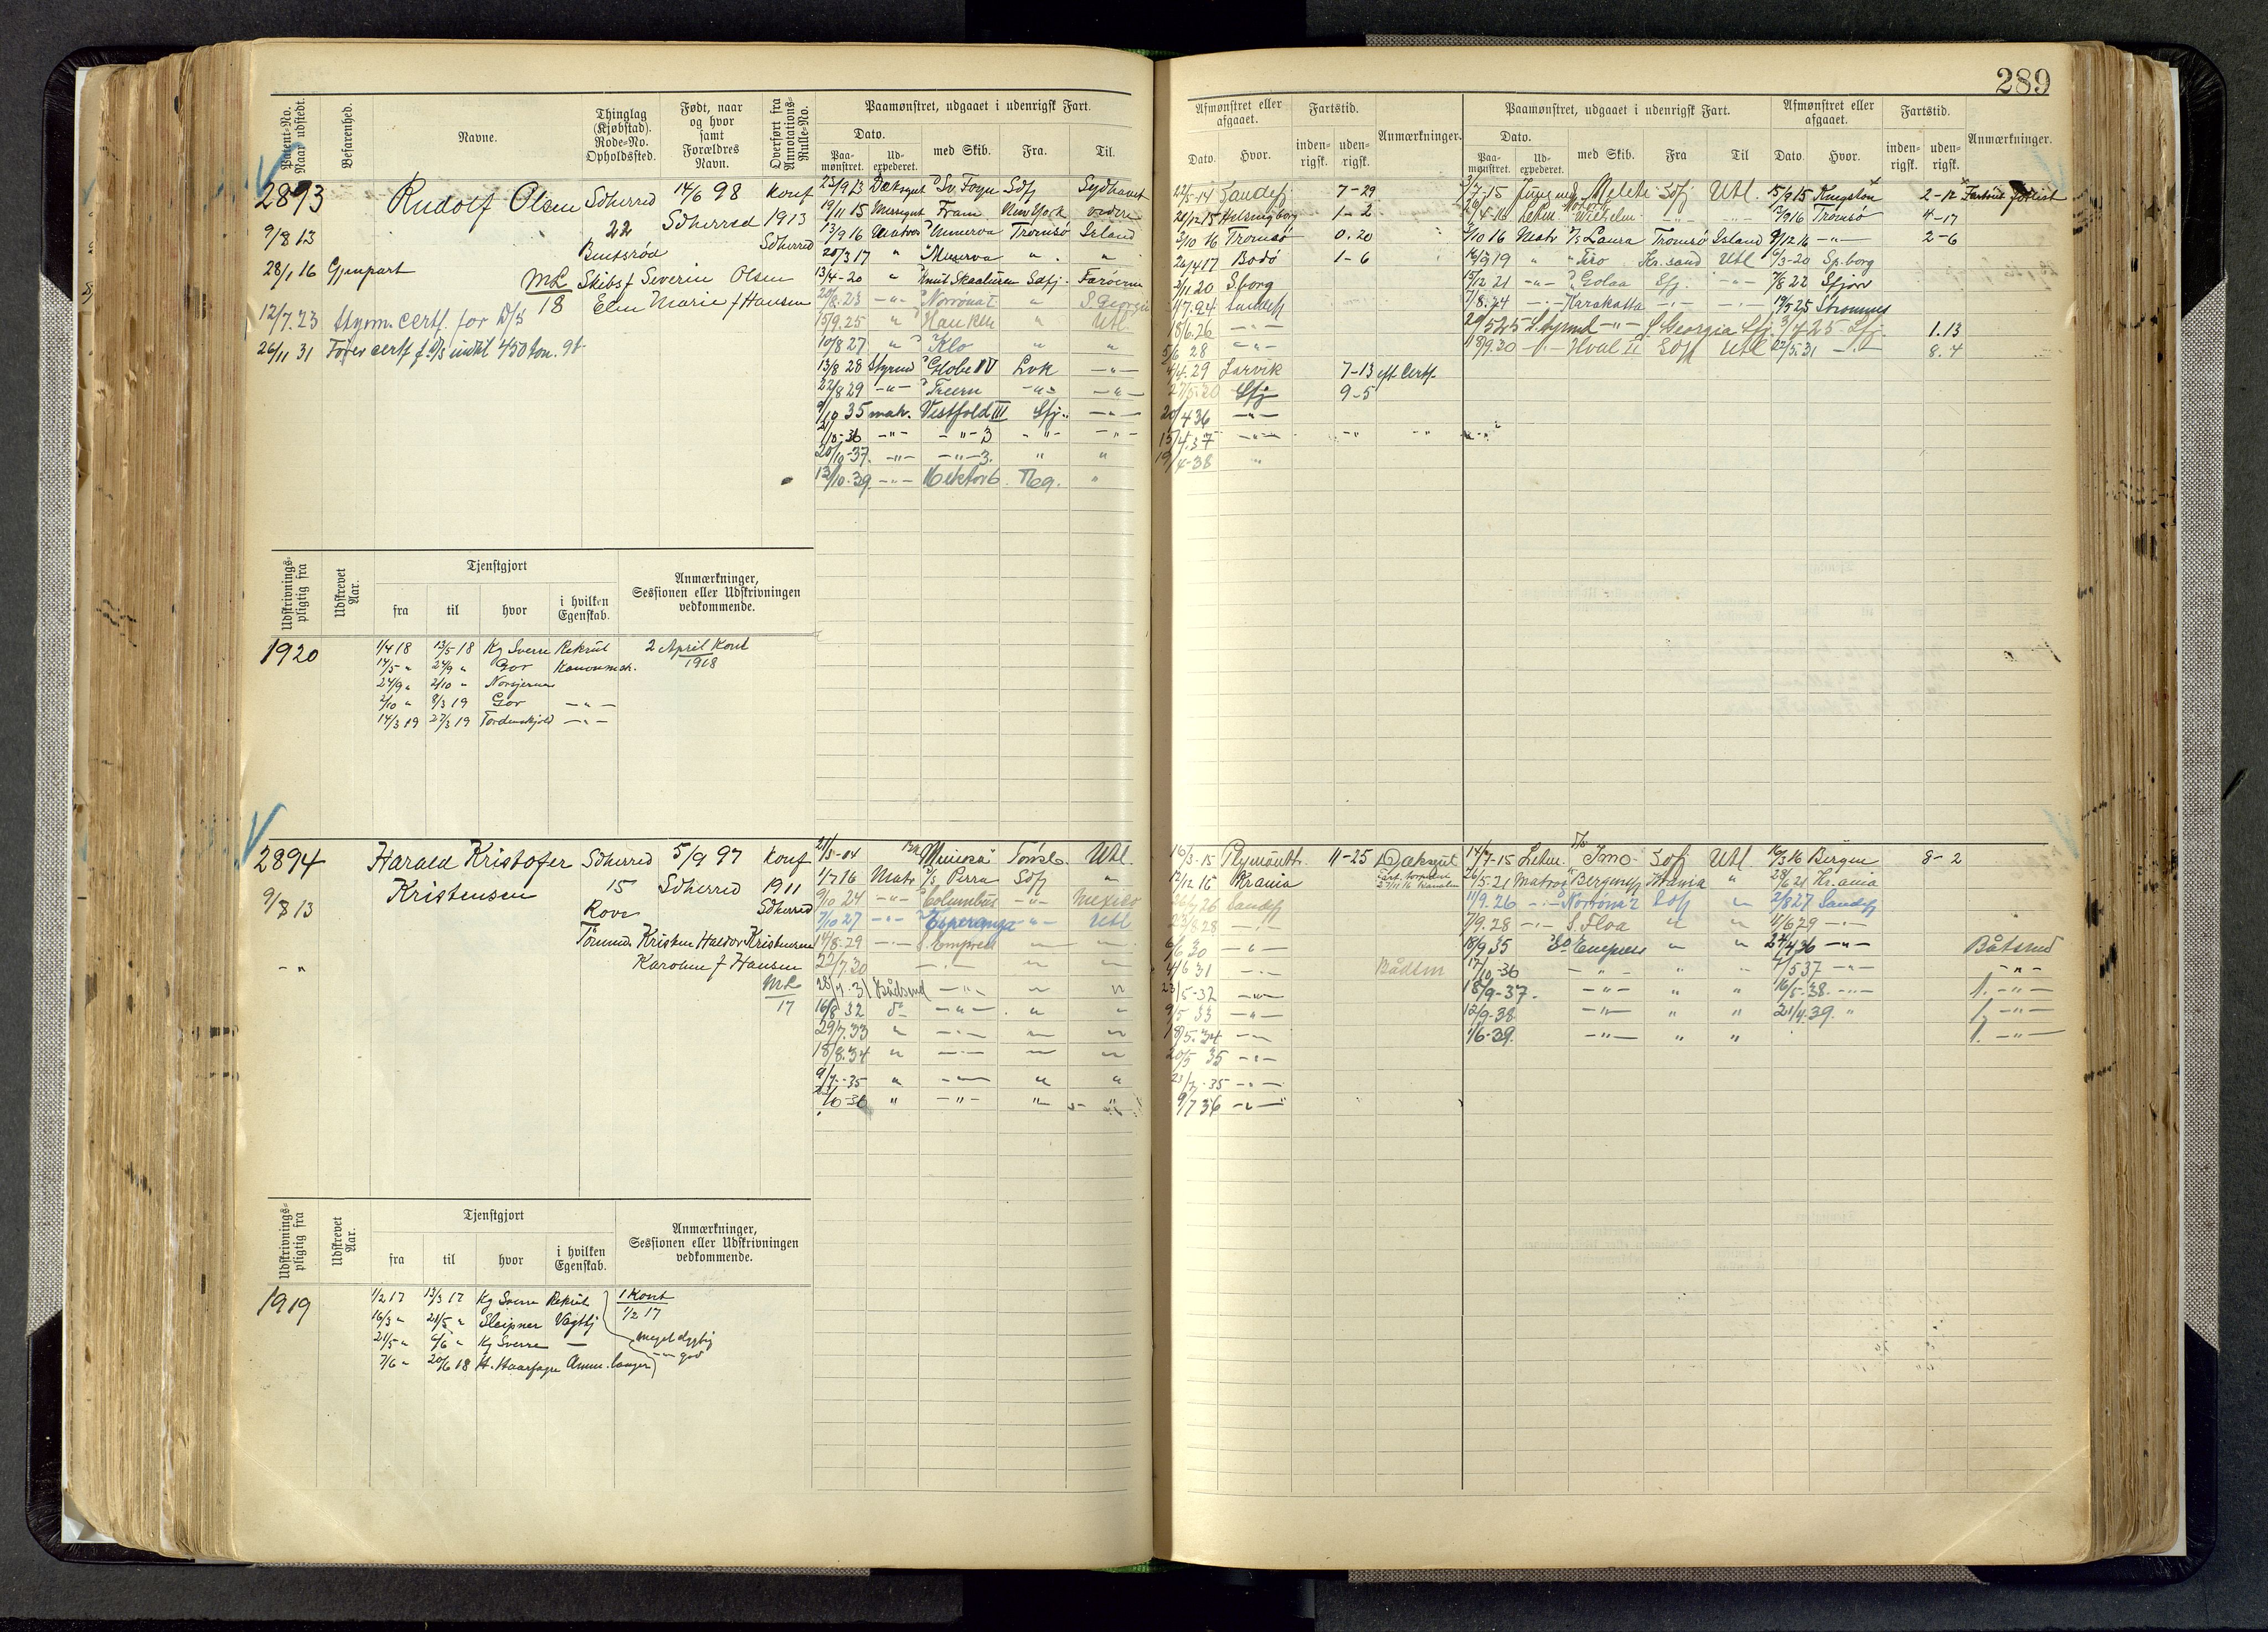 289
Patent-No. Naar udstedt.
Befarenhed.
Navne.
Thinglag (Kjøbstad). Rode-No. Opholdssted.
Født, naar og hvor samt Forældres Navn.
Overført fra Annotations-Rulle-No.
Paamønstret, udgaaet i udenrigsk Fart.
Dato.
Paa-mønstret.
Ud-expederet.
med Skib.
Fra.
Til.
2893
Rudolf Olsen
Sdherred
14/6 98
Konf
9/8 13
22
Sdherred
1913
Buessrød
Sdherred
28/1 16 Gjenpart
ML
18
Skibsf Severin Olsen
Elen Marie f Hansen
12/7.23 Styrm. certf. for D/S
26/11 31 Fører certf f. D/S indtil 450 ton.
25/9 13 Dæksgut Sv. Foyn Sdfj Sydhavet
19/11 15 Messegut Fram New York videre
13/9 16 Matros Minerva Tromsø Island
20/3 17 " Minerva " "
13/4-20 " Knut Skaaluren Sdfj. Farøerne
20/8.23 -"- Norrøna I " S. Georgia
15/9.25 " Hauken " Utl.
10/8 27 " Klo " "
13/8 28 Styrmd Globe IV Lvk -"-
22/8 29 -"- Treern -"- -"-
9/10 35 matr. Vestfold III Sfj. -"-
21/10-36 -"- -"- 3 -"- -"-
20/10-37. -"- -"- 3. " "
13/10.39. -"- Hektor 6 Tbg. "
Udskrivnings-pligtig fra
Udskrevet Aar.
Tjenstgjort
fra
til
hvor
i hvilken Egenskab.
Anmærkninger, Sessionen eller Udskrivningen vedkommende.
1920
1/4 18 13/5 18 Kg Sverre Rekrut
14/5 " 24/9 " Gor Kanonmsk.
24/9 " 2/10 " Norsjernen
2/10 " 8/3 19 Gor -"-
14/3 19 27/3 19 Tordenskjold -"-
2 April Kont
1918
2894
Harald Kristofer
Kristensen
Sdherred
5/9 97
Konf
9/8 13
15
Sdherred
1911
Rove
Sdherred
Tømmerm Kristen Haldor Kristensen
Karoline f Hansen
ML
17
Mimosa Tønsb. Utl.
1/7 16 Matr D/S Perra Sdfj "
9/10 24 -"- Columbus -"- Mexico
7/10 27 -"- Esperanza -"- Utl
14/8.29 -"- S. Empress
22/7.30 -"-
28/7.31 Bådsmd -"- " "
16/8 32 do -"- " "
29/7.33 " -"- " "
18/8.34 " -"- " "
9/7-35 " -"- " "
2/10-36 " -"- " "
Udskrivnings-pligtig fra
Udskrevet Aar.
Tjenstgjort
fra
til
hvor
i hvilken Egenskab.
Anmærkninger, Sessionen eller Udskrivningen vedkommende.
1919
1/2 17 13/3 17 Kg Sverre Rekrut
16/3 " 21/5 " Sleipner Vagthj
21/5 " 6/6 " Kg Sverre —
7/6 " 20/6 18 H. Haarfagre Amm. langer
1 Kont
1/2 17
meget dygtig
-"- god
Afmønstret eller afgaaet.
Dato.
Hvor.
Fartstid.
inden-rigsk.
uden-rigsk.
Anmærkninger.
Paamønstret, udgaaet i udenrigsk Fart.
Dato.
Paa-mønstret.
Ud-expederet.
med Skib.
Fra
Til
Afmønstret eller afgaaet.
Dato.
Hvor.
Fartstid.
inden-rigsk.
uden-rigsk.
Anmærkninger.
22/5-14 Sandefj 7-29
28/12 15 Helsingborg 1-2
3/10 16 Tromsø 0.20
26/4 17 Bodø 1-6
2/11 20 S.borg
4/7.24 Sandefj
18/6.26 -"-
5/6 28 -"-
4/4.29 Larvik 7-13 eft. Certf.
27/5.30 Sfj 9-5
20/4 36 -"-
15/4.37 -"-
19/4-38 "
3/7-15 Jungmd Sdfj Utl. 15/9 15 Kingston 2-12 Forlist
26/4-16 Letm. Motorsk Wilhelm -"- -"- 13/9 16 Tromsø 4-17
3/10 16 Matr D/S Laura Tromsø Island 9/12 16 -"- 2-6
16/9 19 " Tiro Kr.sand Utl 6/3-20 Sp.borg
15/12 21 -"- Golaa Sfj. -"- 7/8 22 Sfjor
7/8.24 -"- Karakatta -"- -"- 19/5 25 Stromnes
29/5 25 Styrmd -"- S Georgia Sfj. 3/7 25 Sfj 1.13
18/9.30 -"- Hval II Sdfj Utl 22/5.31 -"- 8.4
16/3-15 Plymouth 11-25 Dæksgut
12/12 16 Krania
26/6 26 Sandefj
23/8 28 -"-
6/6 30 -"-
4/6 31 -"- Bådsm
23/5-32 -"-
9/5 33 -"-
18/5.34 -"-
20/5 35 -"-
23/7-35 -"-
9/7 36 -"-
14/7-15 Letm. D/S Imo Sdfj Utl. 16/3 16 Bergen 8-2
26/5.21 Matros Bergensfj Krania " 28/6 21 Kr.ania
11/9.26 -"- Norrøna 2 Sdfj " 2/8 27 Sandefj
7/9.28 -"- S. Floa " " 11/6 29 -"-
18/9 35 So Empress " " 24/4 36 -"- Båtsmd
17/10-36 -"- " " 7/5 37 -"- -"-
18/9-37. -"- " " 16/5-38. -"- 1. -"-
12/9-38 -"- " " 21/4.39. " 1. -"-
1/6-39. -"- " " 1. -"-